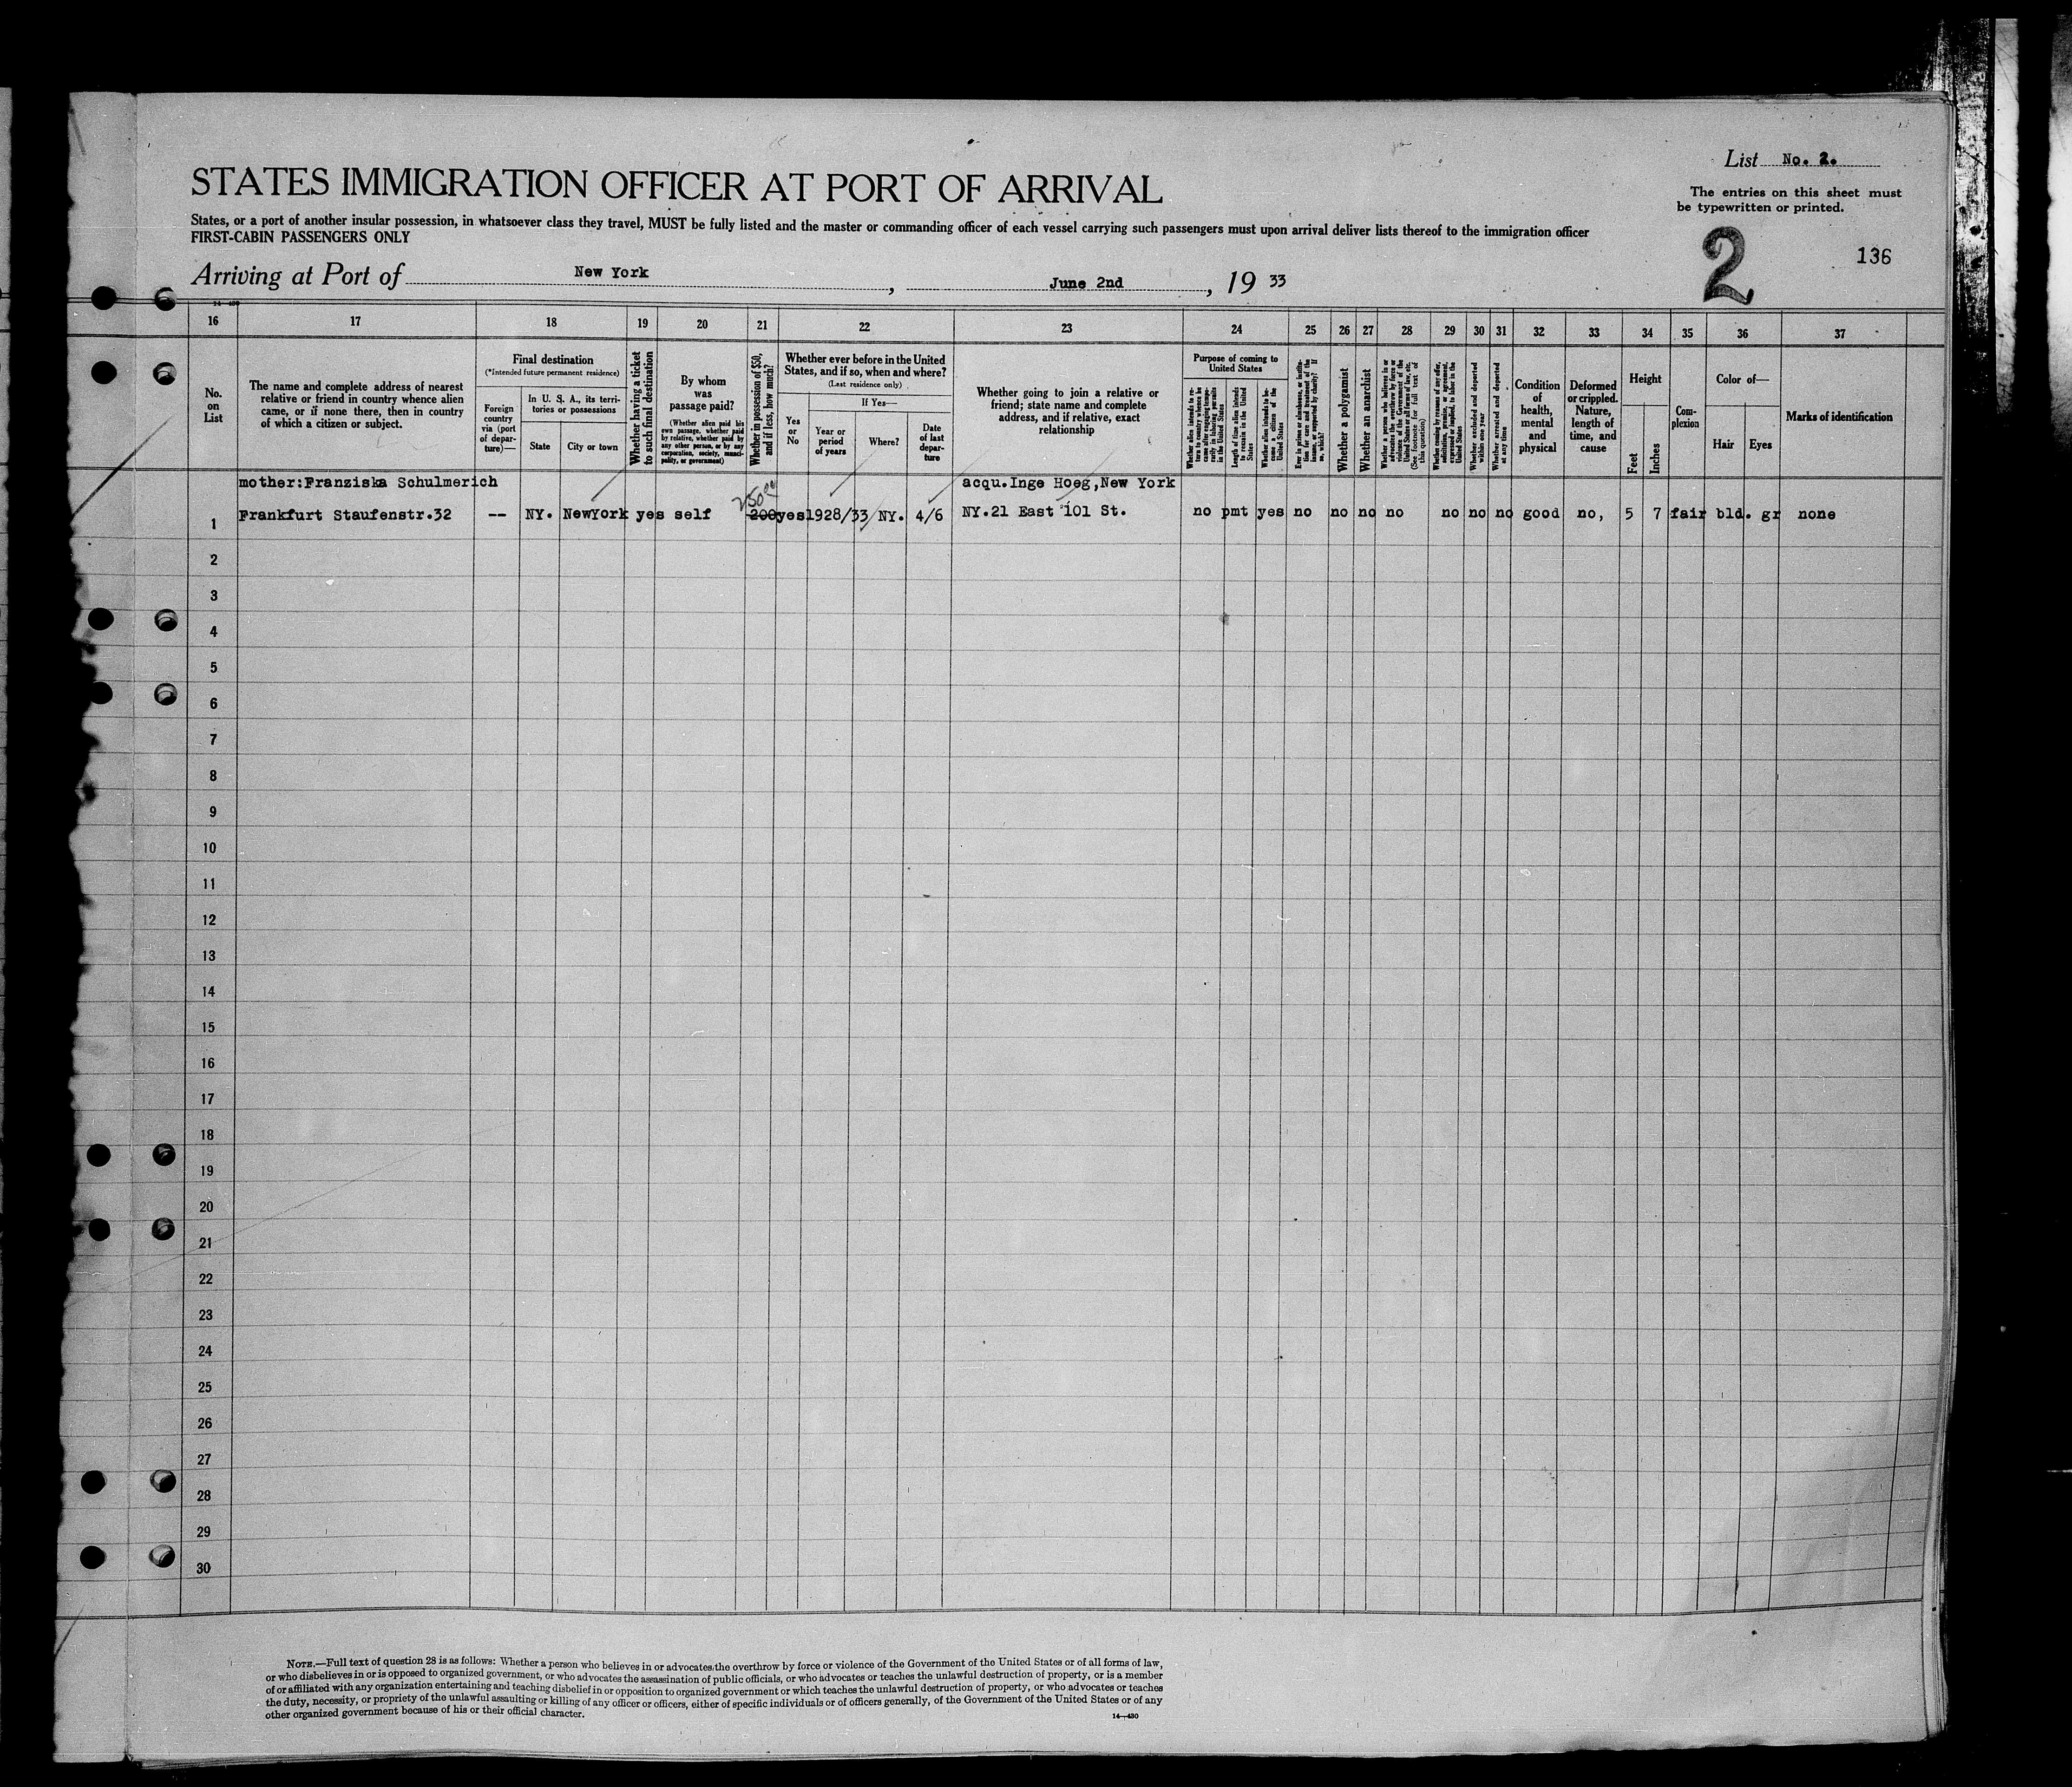 List No. 2.
STATES IMMIGRATION OFFICER AT PORT OF ARRIVAL
The entries on this sheet must
be typewritten or printed.
States, or a port of another insular possession, in whatsoever class they travel, MUST be fully listed and the master or commanding officer of each vessel carrying such passengers must upon arrival deliver lists thereof to the immigration officer
FIRST-CABIN PASSENGERS ONLY
2
136
Arriving at Port of New York, June 2nd, 19 33
14-430
16 17 18 19 20 21 22 23 24 25 26 27 28 29 30 31 32 33 34 35 36 37
No.
on
List
The name and complete address of nearest
relative or friend in country whence alien
came, or if none there, then in country
of which a citizen or subject.
Final destination
(*Intended future permanent residence)
Foreign
country
via (port
of depar-
ture)—
In U. S. A., its terri-
tories or possessions
State
City or town
Whether having a ticket
to such final destination
By whom
was
passage paid?
(Whether alien paid his
own passage, whether paid
by relative, whether paid by
any other person, or by any
corporation, society, munici-
pality, or government)
Whether in possession of $50,
and if less, how much?
Whether ever before in the United
States, and if so, when and where?
(Last residence only)
Yes
or
No
If Yes—
Year or
period
of years
Where?
Date
of last
depar-
ture
Whether going to join a relative or
friend; state name and complete
address, and if relative, exact
relationship
Purpose of coming to
United States
Whether alien intends to re-
turn to country whence he
came after engaging tempo-
rarily in laboring pursuits
in the United States
Length of time alien intends
to remain in the United
States
Whether alien intends to be-
come a citizen of the
United States
Ever in prison or almshouse, or institu-
tion for care and treatment of the
insane, or supported by charity? If
so, which?
Whether a polygamist
Whether an anarchist
Whether a person who believes in or
advocates the overthrow by force or
violence of the Government of the
United States or all forms of law, etc.
(See footnote for full text of
this question)
Whether coming by reason of any offer,
solicitation, promise, or agreement,
expressed or implied, to labor in the
United States
Whether excluded and deported
within one year
Whether arrested and deported
at any time
Condition
of
health,
mental
and
physical
Deformed
or crippled.
Nature,
length of
time, and
cause
Height
Feet
Inches
Com-
plexion
Color of—
Hair
Eyes
Marks of identification
mother:Franziska Schulmerich
250.00
acqu.Inge Hoeg,New York
1 Frankfurt Staufenstr.32 -- NY. NewYork yes self 200 yes 1928/33 NY. 4/6 NY.21 East 101 St. no pmt yes no no no no no no no good no, 5 7 fair bld. gr none
2
3
4
5
6
7
8
9
10
11
12
13
14
15
16
17
18
19
20
21
22
23
24
25
26
27
28
29
30
NOTE.—Full text of question 28 is as follows: Whether a person who believes in or advocates the overthrow by force or violence of the Government of the United States or of all forms of law,
or who disbelieves in or is opposed to organized government, or who advocates the assassination of public officials, or who advocates or teaches the unlawful destruction of property, or is a member
of or affiliated with any organization entertaining and teaching disbelief in or opposition to organized government or which teaches the unlawful destruction of property, or who advocates or teaches
the duty, necessity, or propriety of the unlawful assaulting or killing of any officer or officers, either of specific individuals or of officers generally, of the Government of the United States or of any
other organized government because of his or their official character.
14-430